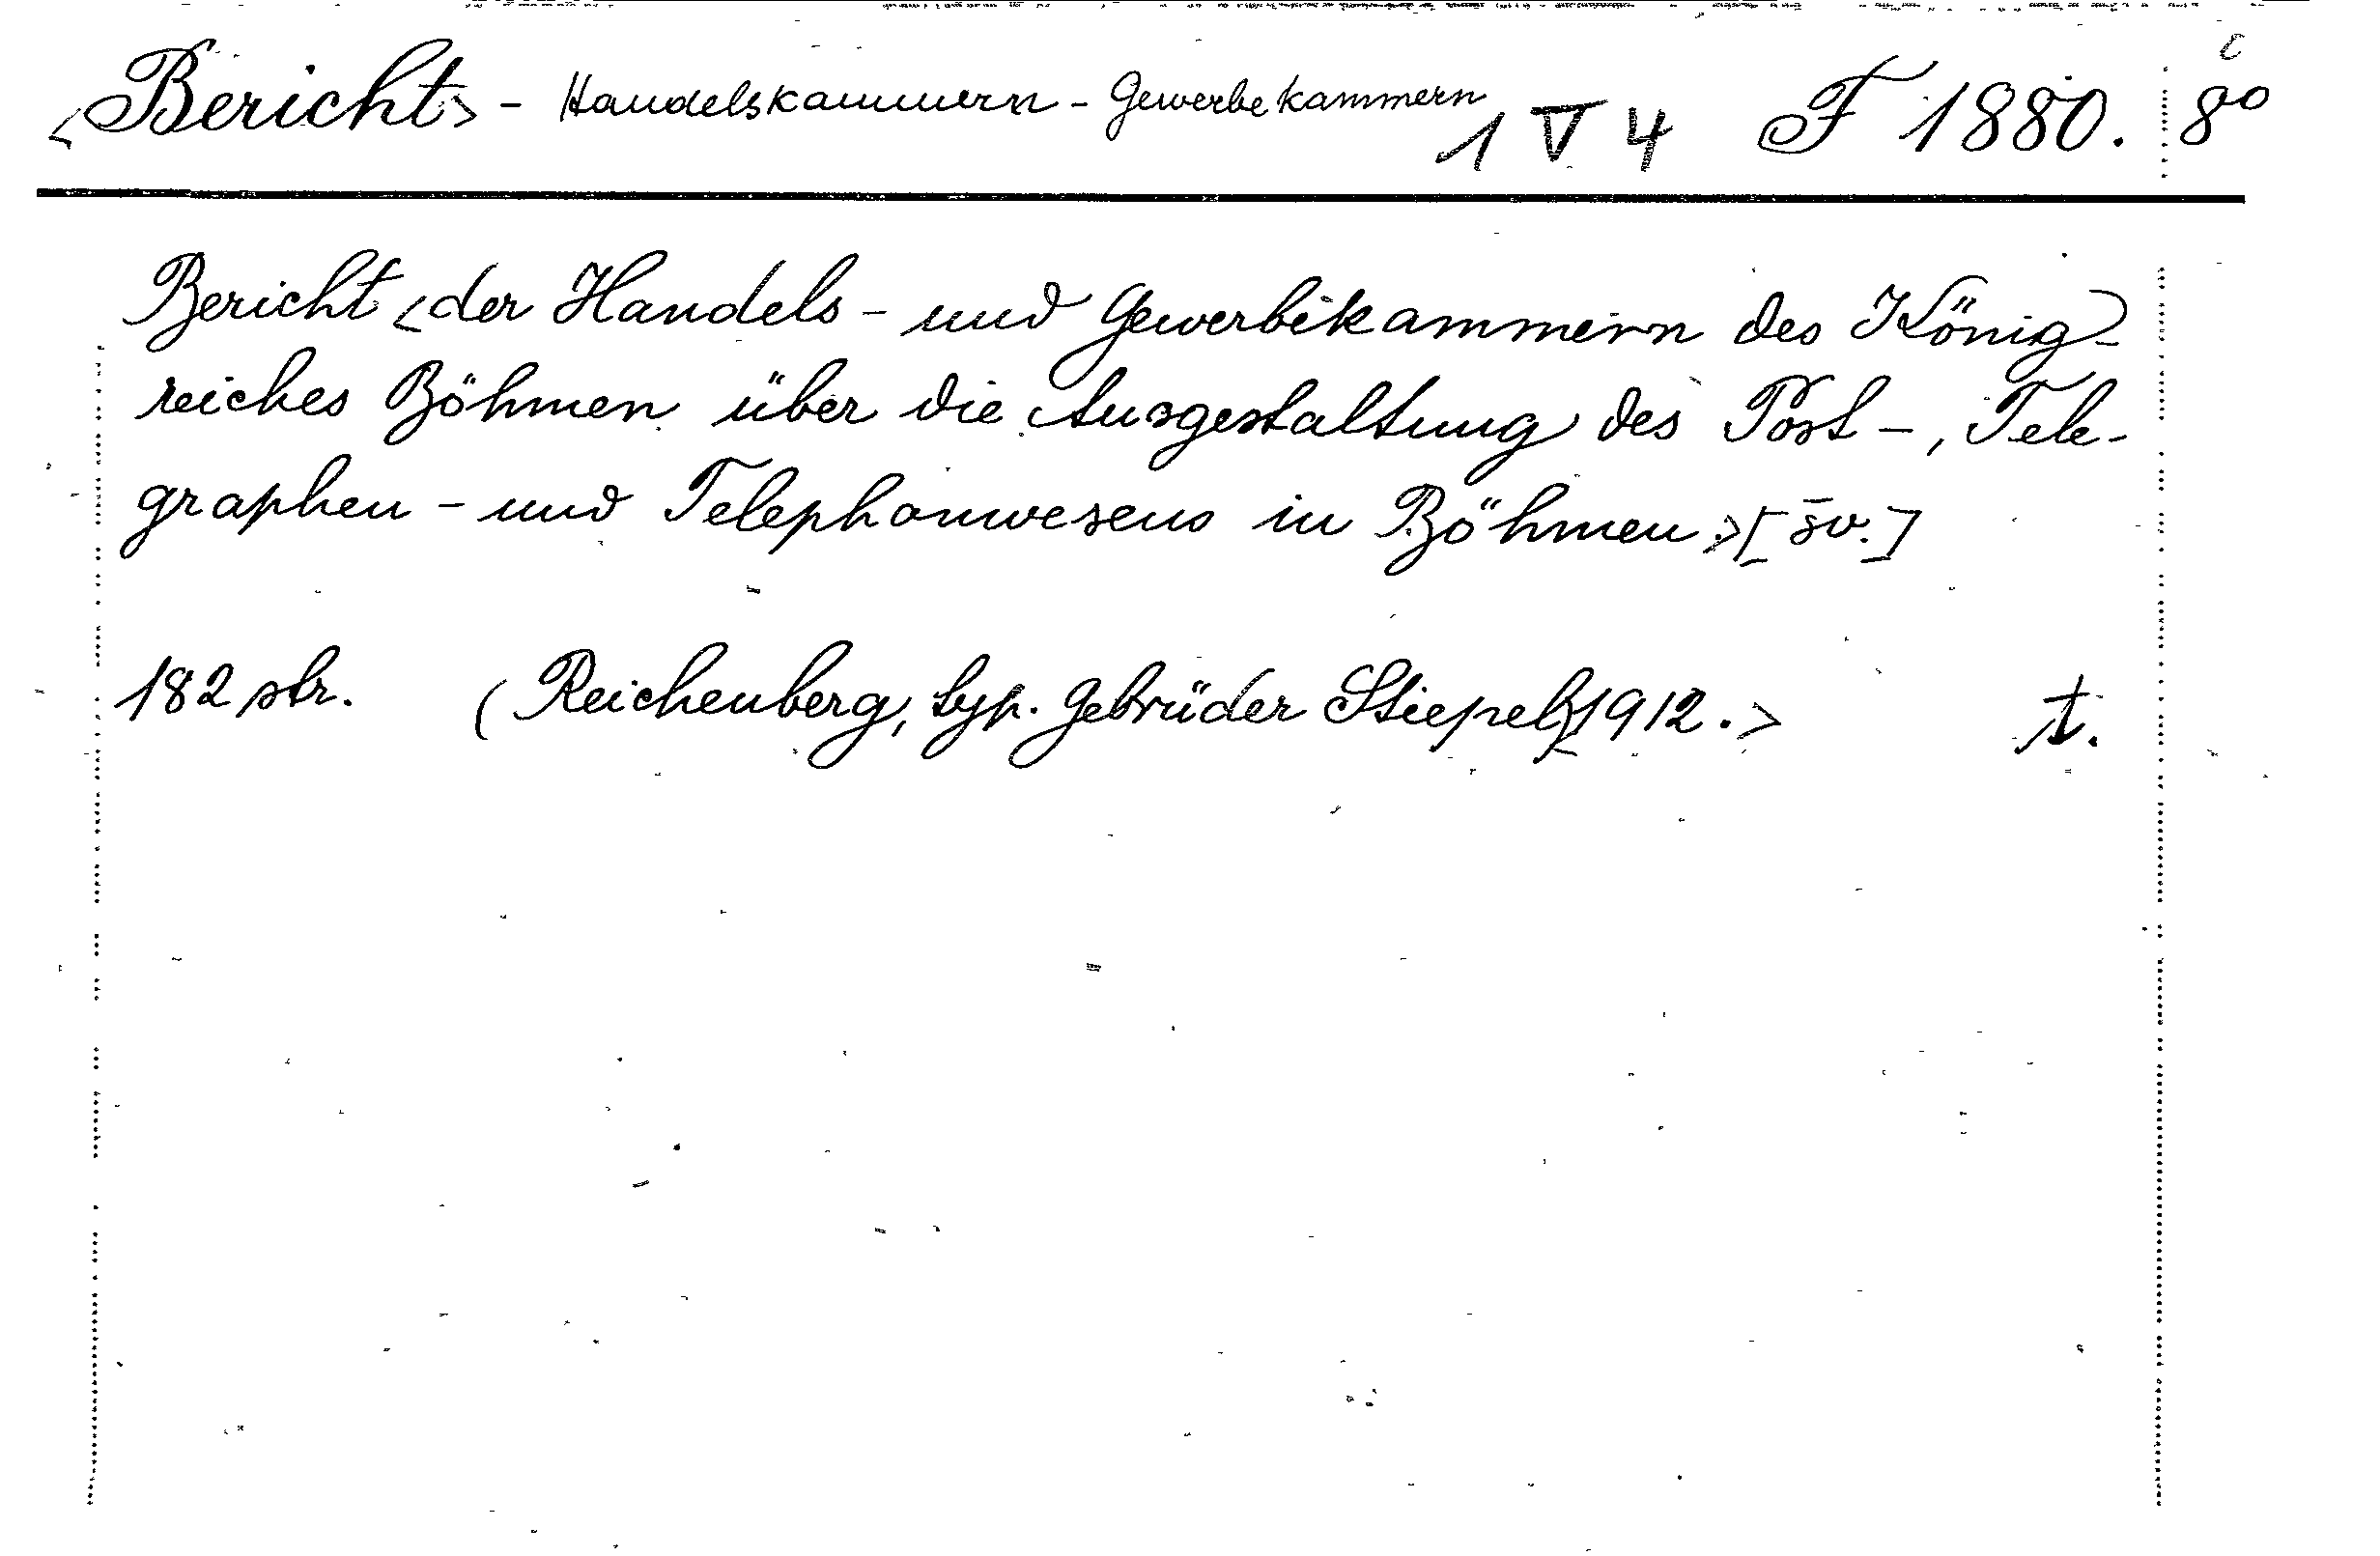 <Bericht> - Handelskammern - Gewerbekammern 1 V 4 F 1880. 8°
Bericht <der Handels - und Gewerbekammern des König-
reiches Böhmen über die Ausgestaltung des Post -, Tele-
graphen - und Telephonwesens in Böhmen.> [sv.]
182 str. (Reichenberg, typ. Gebrüder Stiepel) 1912.> t.